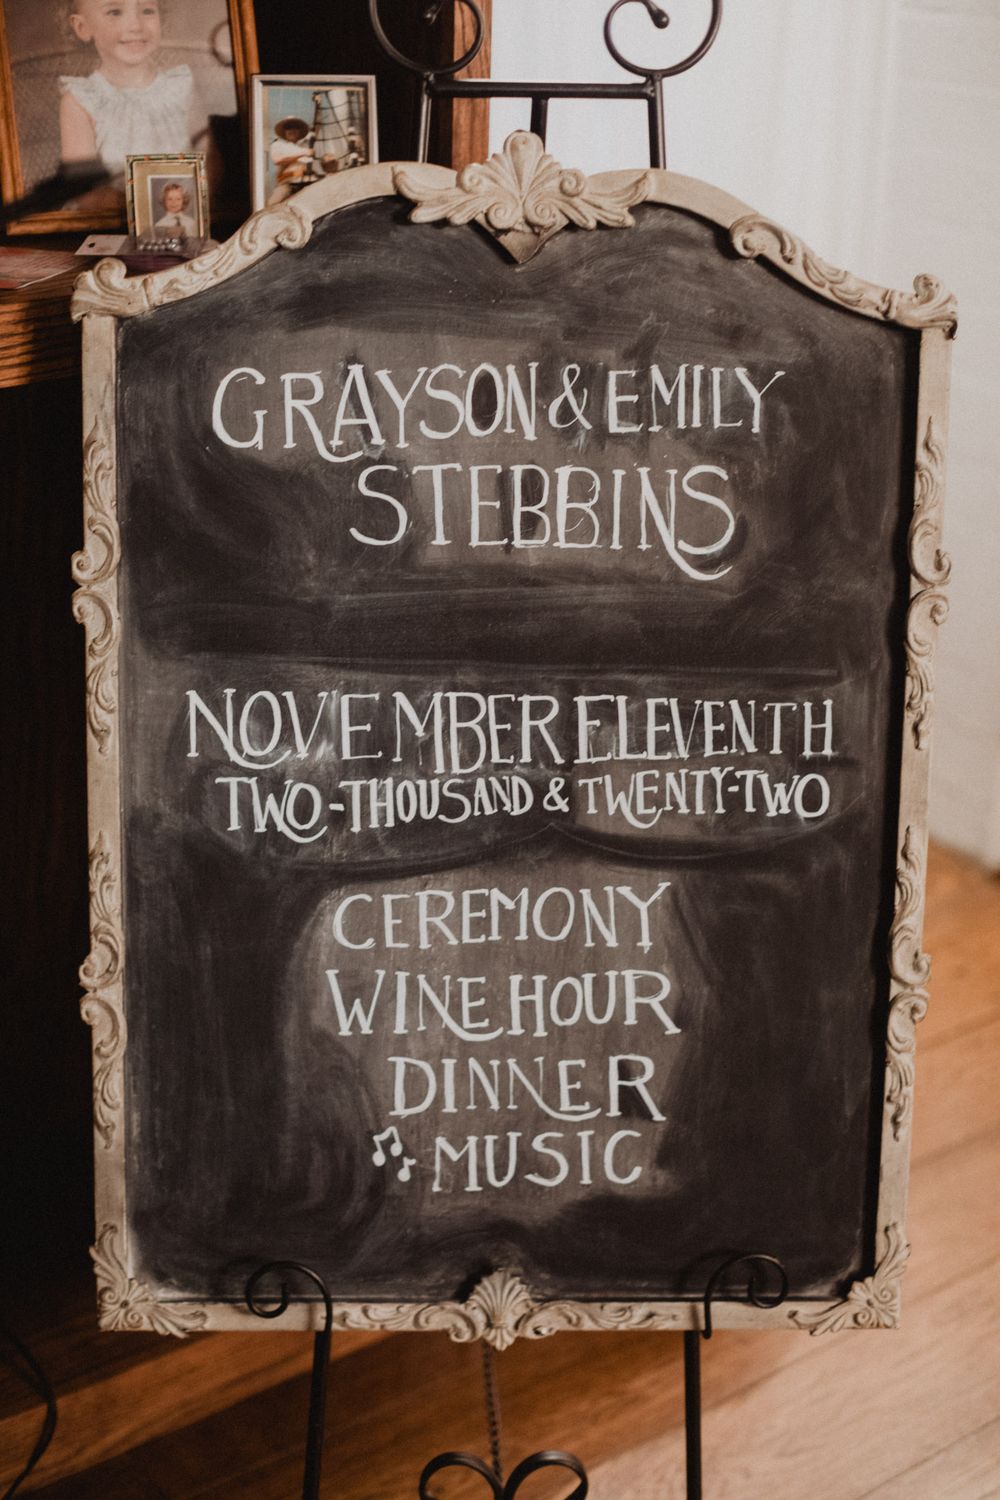 GRAYSON & EMILY
STEBBINS
NOVEMBER ELEVENTH
TWO-THOUSAND & TWENTY-TWO
CEREMONY
WINE HOUR
DINNER
MUSIC